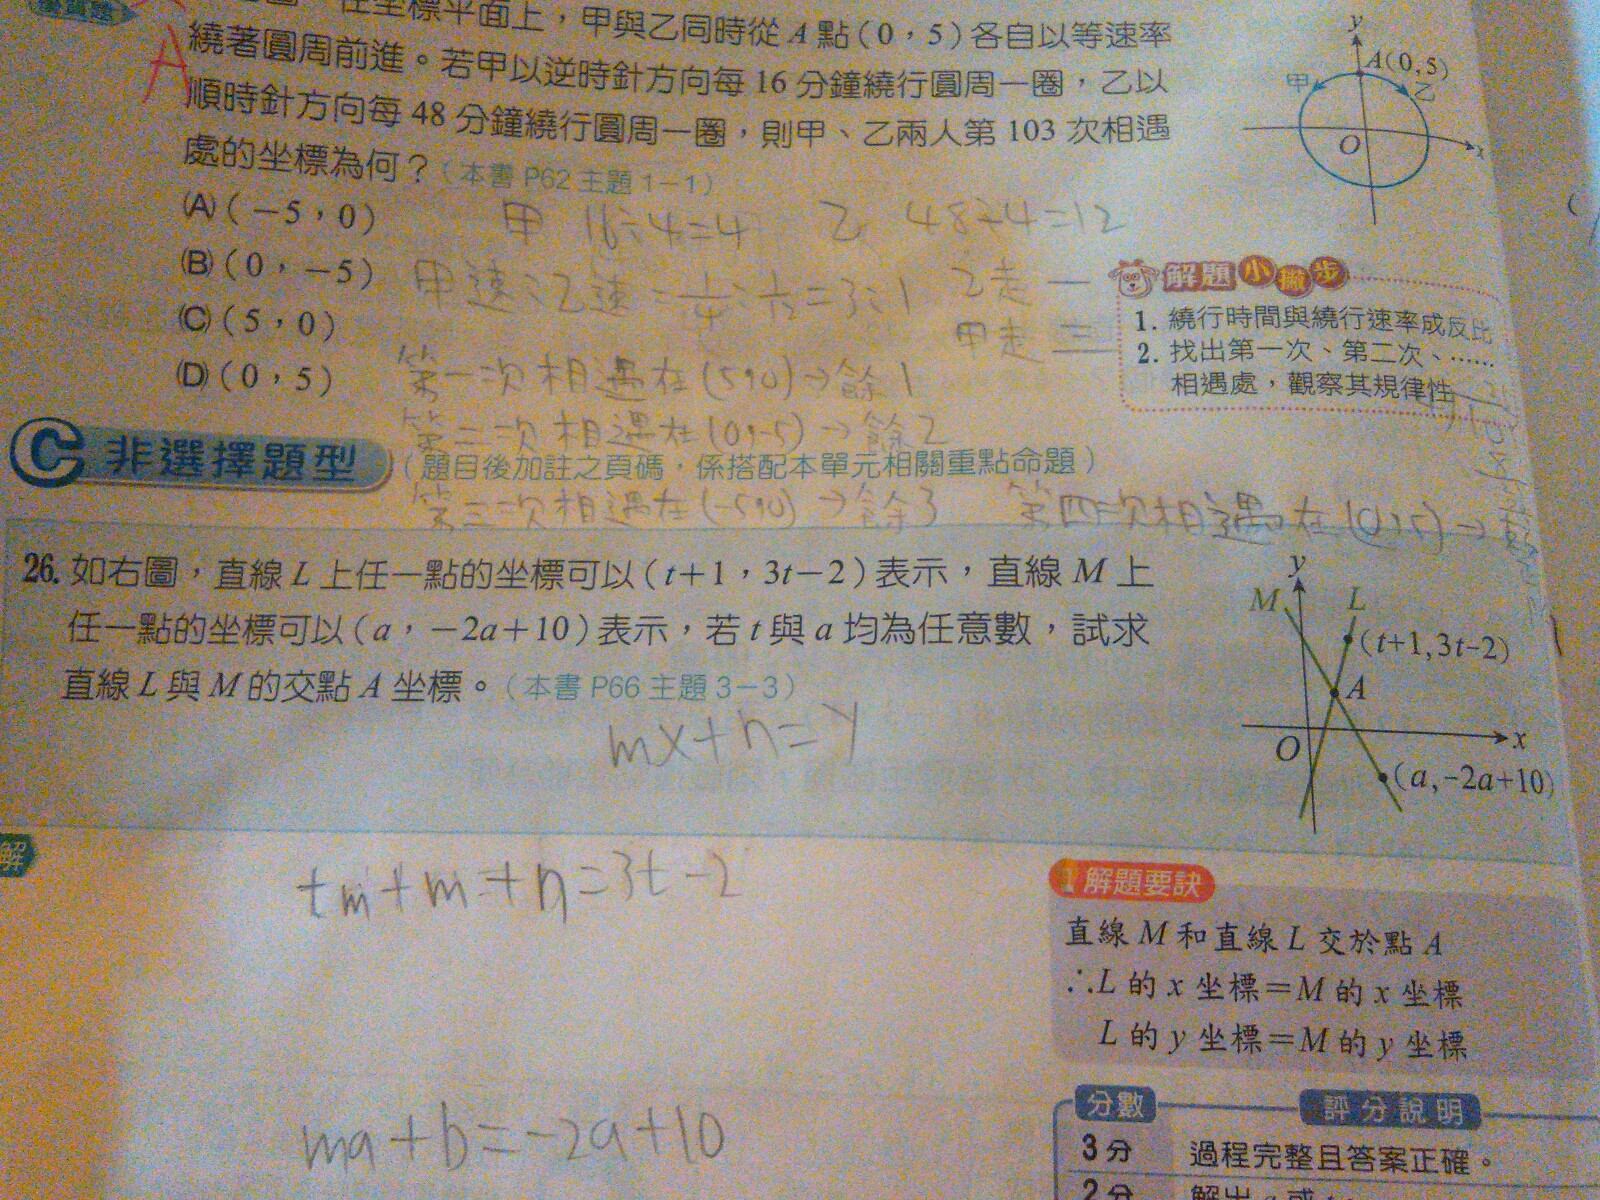 在坐標平面上，甲與乙同時從A點(0，5)各自以等速率
繞著圓周前進。若甲以逆時針方向每16分鐘繞行圓周一圈，乙以
順時針方向每48分鐘繞行圓周一圈，則甲、乙兩人第103次相遇
處的坐標為何？(本書P62主題1-1)
A
y
A(0,5)
甲
乙
O
x
(A)(-5，0)
(B)(0，-5)
(C)(5，0)
(D)(0，5)
甲 16÷4=4 乙 48÷4=12
甲速:乙速=1/4:1/12=3:1
乙走一
甲走三
第一次相遇在(5,0)→餘1
第二次相遇在(0,-5)→餘2
第三次相遇在(-5,0)→餘3
第四次相遇在(0,5)→
解題小撇步
1. 繞行時間與繞行速率成反比
2. 找出第一次、第二次、……
相遇處，觀察其規律性
C 非選擇題型 (題目後加註之頁碼，係搭配本單元相關重點命題)
26. 如右圖，直線L上任一點的坐標可以(t+1，3t-2)表示，直線M上
任一點的坐標可以(a，-2a+10)表示，若t與a均為任意數，試求
直線L與M的交點A坐標。(本書P66主題3-3)
mx+n=y
y
M
L
(t+1,3t-2)
A
O
x
(a,-2a+10)
解
tm+m+n=3t-2
ma+b=-2a+10
1 解題要訣
直線M和直線L交於點A
∴L的x坐標=M的x坐標
L的y坐標=M的y坐標
分數 評分說明
3分 過程完整且答案正確。
2分 解出